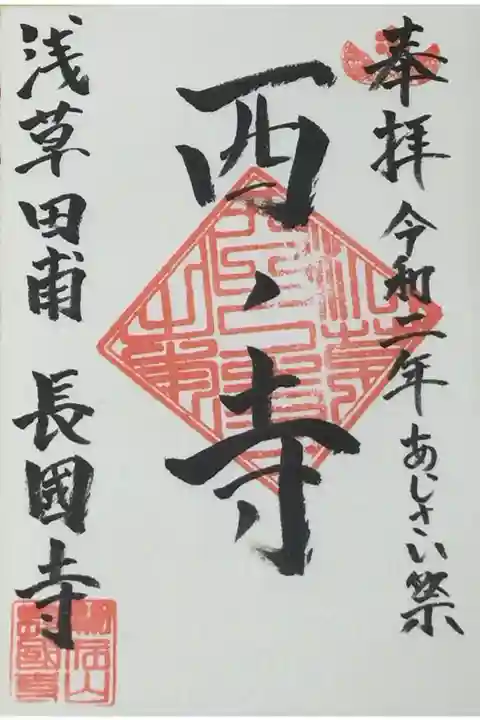 奉拝 令和二年 あじさい祭
酉ノ寺
浅草田甫 長國寺